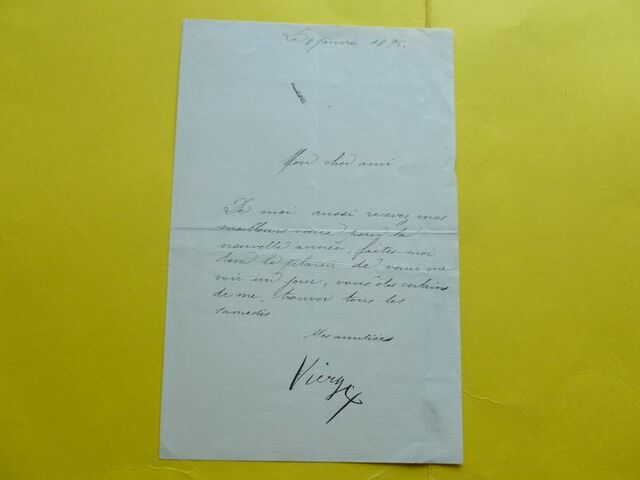 Le 8 Janvier 1895.
Mon cher ami
De moi aussi recevez mes
meilleurs vœux pour la
nouvelle année, faites-moi
tout le plaisir de venir me
voir un jour, vous êtes certains
de me trouver tous les
samedis
Mes amitiées
Vierge